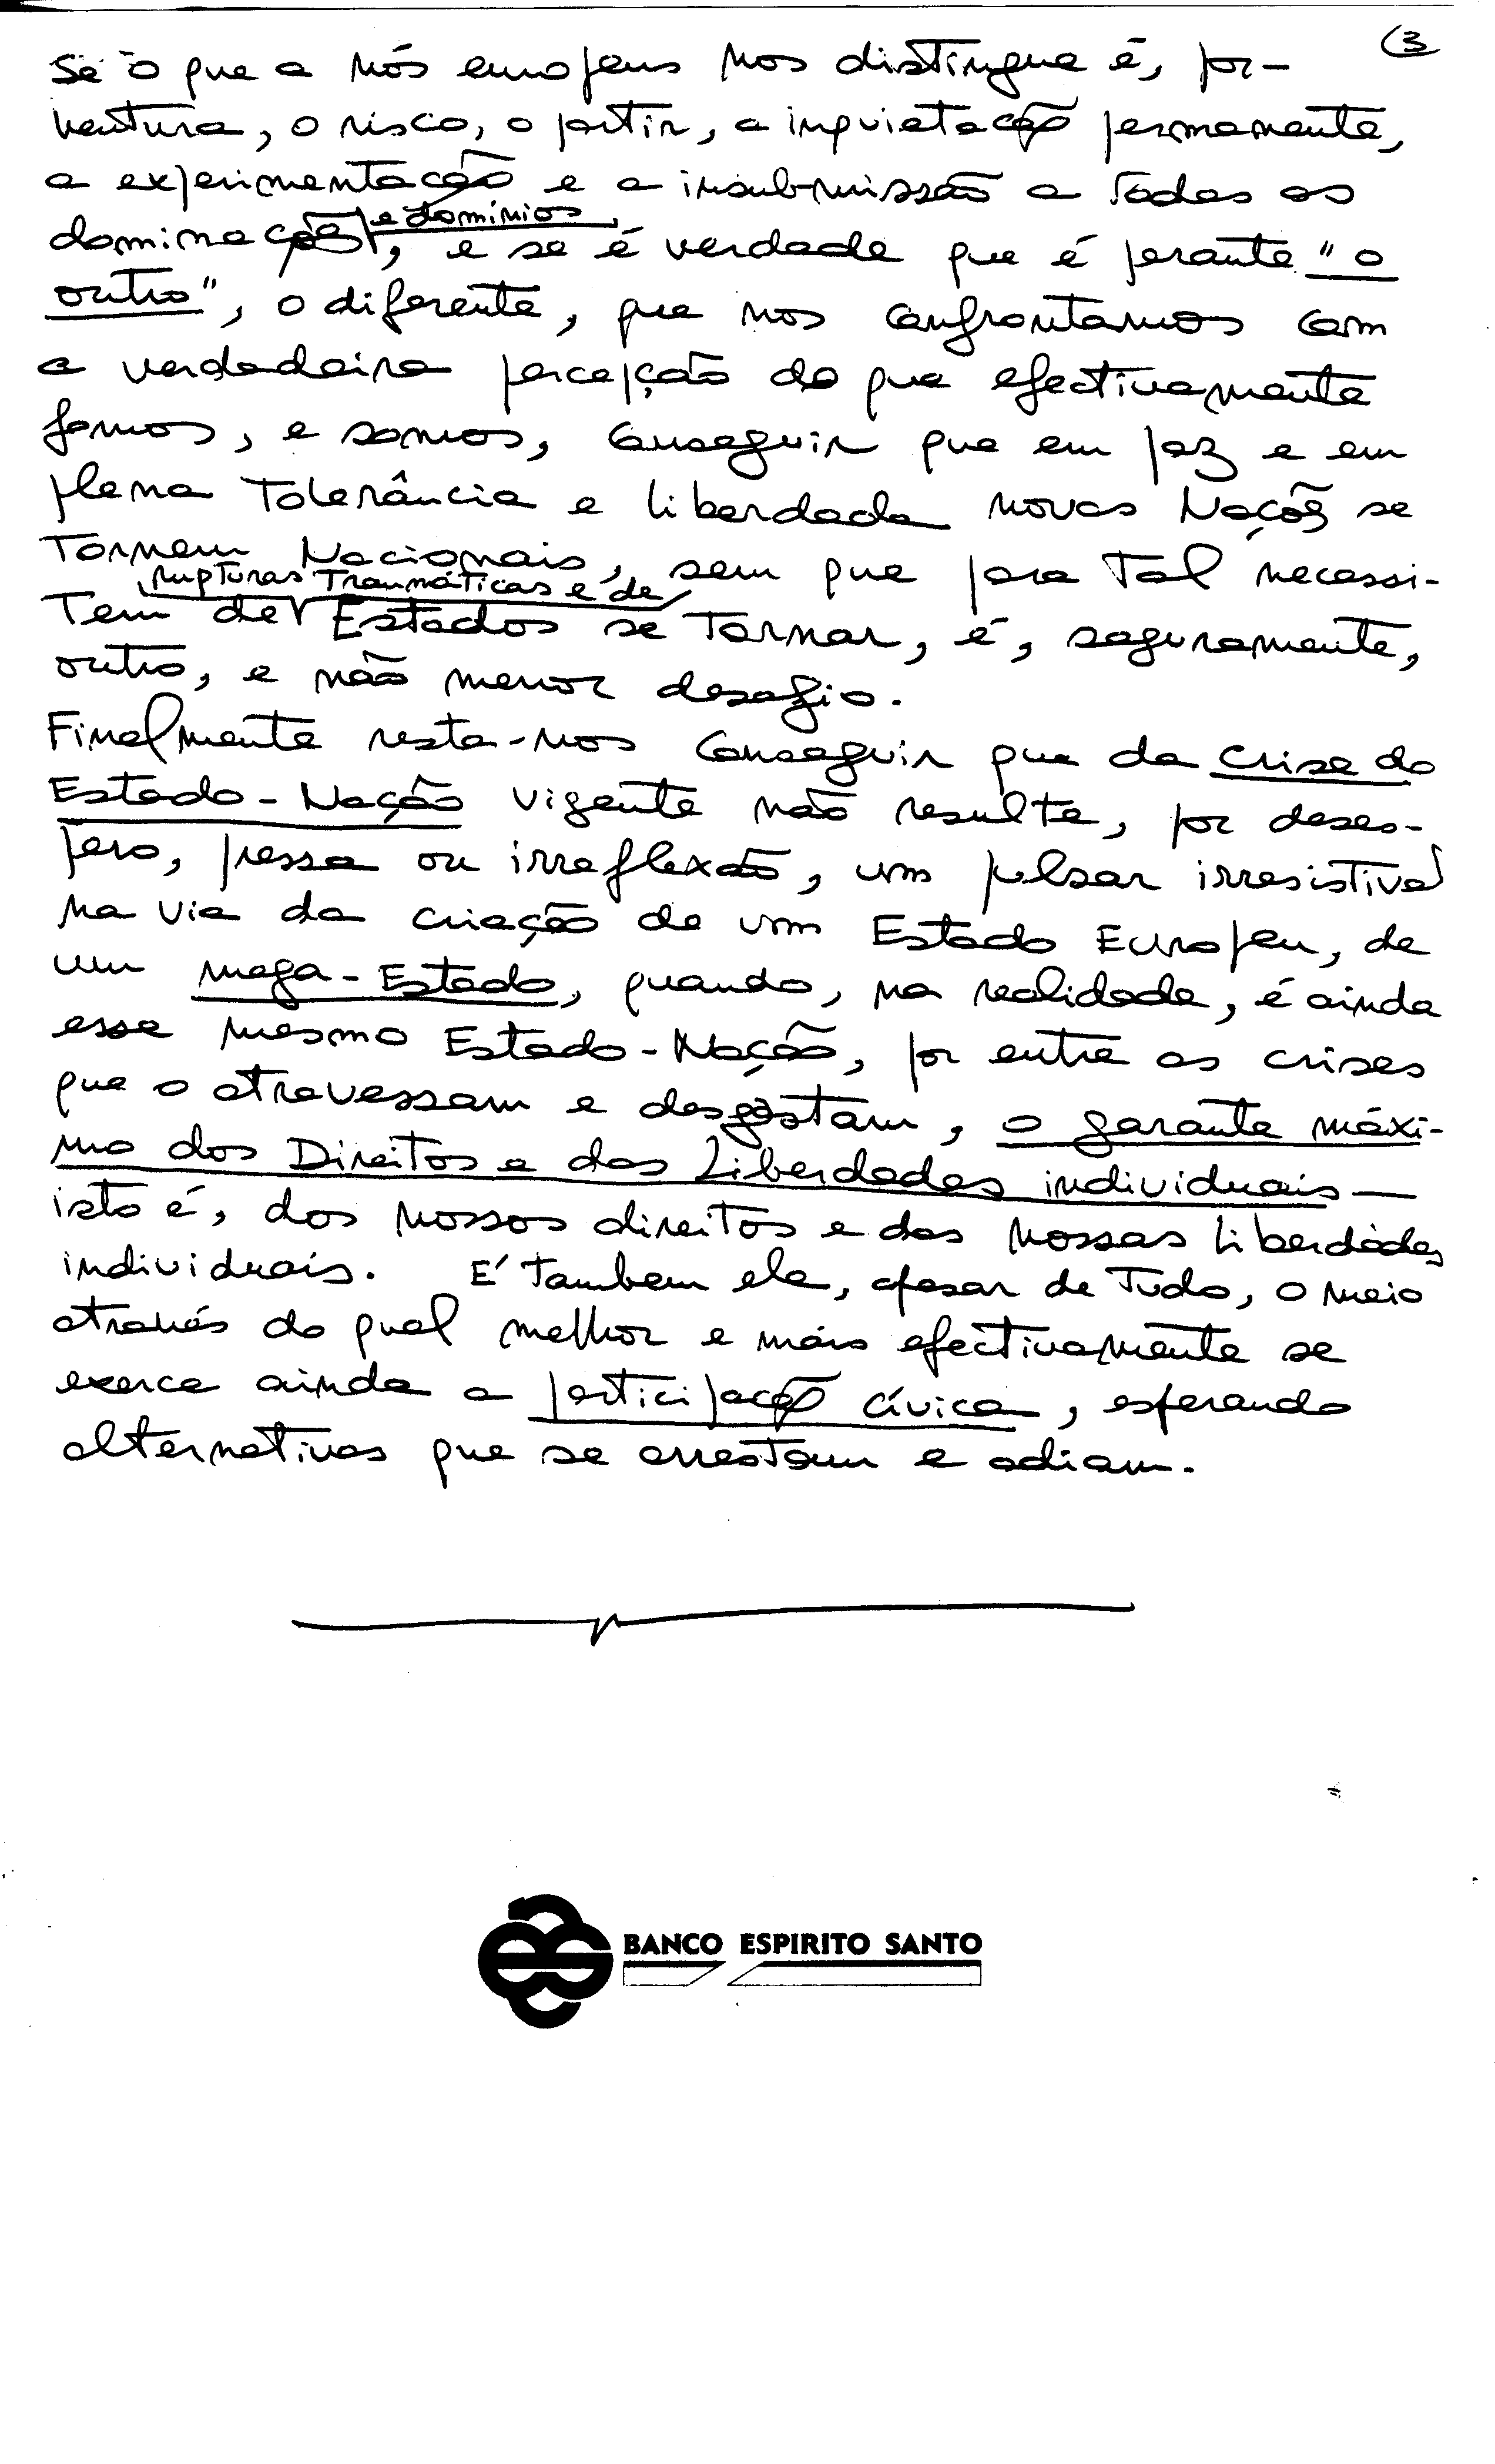 (3
Se o que a nós europeus nos distingue é, por-
ventura, o risco, o partir, a inquietação permanente,
a experimentação e a insubmissão a todas as
e domínios
dominações, e se é verdade que é perante "o
outro", o diferente, que nos confrontamos com
a verdadeira percepção do que efectivamente
fomos, e somos, conseguir que em paz e em
plena Tolerância e liberdade novas Nações se
Tornem Nacionais, sem que para Tal necessi-
rupturas Traumáticas e de
Tem de Estados se Tornar, é, seguramente,
outro, e não menor desafio.
Finalmente resta-nos conseguir que da crise do
Estado-Nação vigente não resulte, por deses-
pero, pressa ou irreflexão, um pulsar irresistivel
na via da criação de um Estado Europeu, de
um mega-Estado, quando, na realidade, é ainda
esse mesmo Estado-Nação, por entre as crises
que o atravessam e desgastam, o garante máxi-
mo dos Direitos e das Liberdades individuais —
isto é, dos nossos direitos e das nossas liberdades
individuais. É Tambem ele, apesar de Tudo, o meio
através do qual melhor e mais efectivamente se
exerce ainda a participação cívica, esperando
alternativas que se arrestam e adiam.
BANCO ESPIRITO SANTO